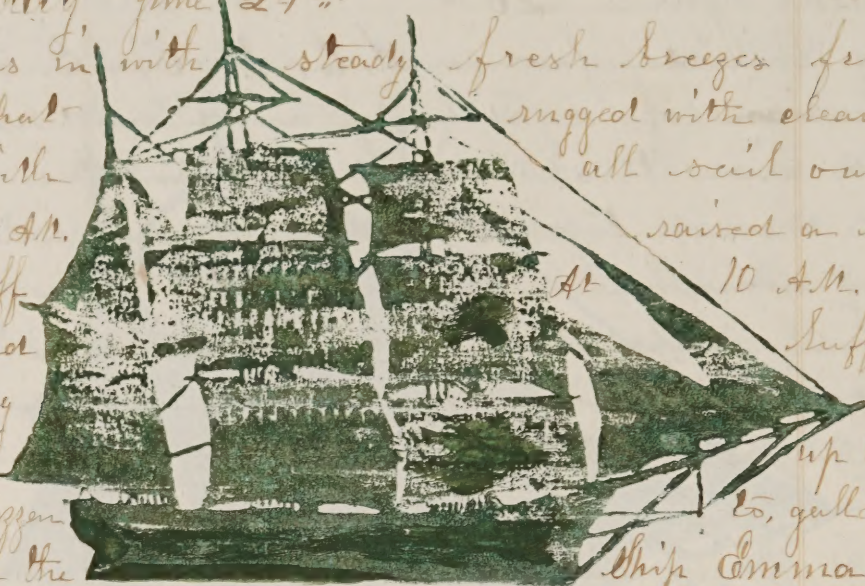 June 24"
s in with steady fresh breezes fr
hat rugged with clear
ith all sail ou
AM. raised a
ff At 10 A.M.
d Luff
g up
zzen to, gall
the Ship Emma